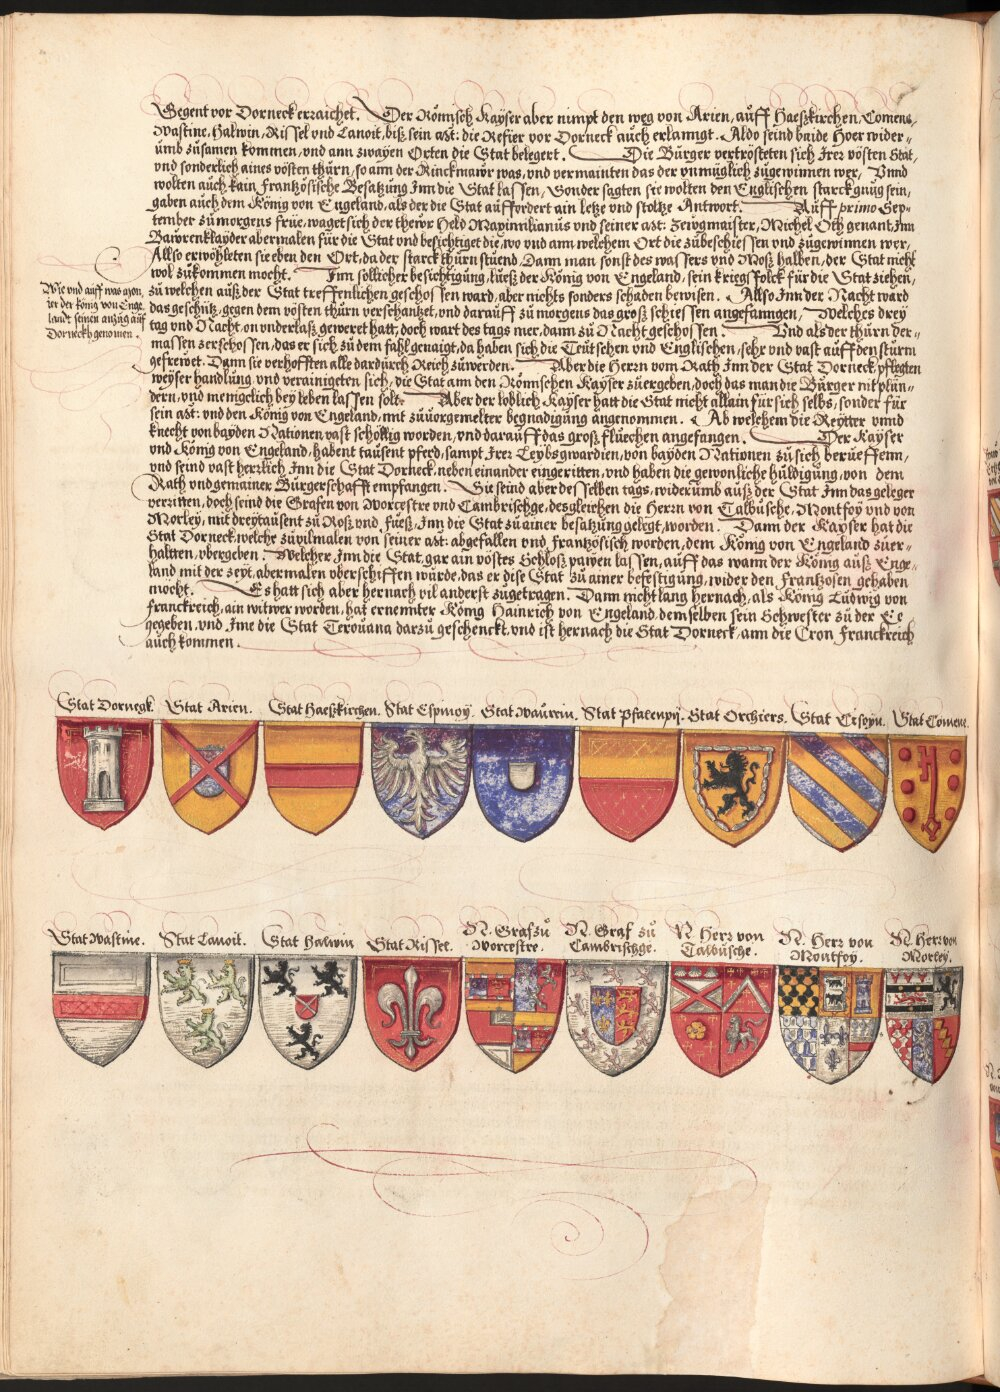 Gegent vor Dorneck erraichet. Der Römisch Kayser aber nimpt den weg von Arien, auff Haeszkirchen, Comens,
Wastine, Halwin, Rissel vnd Lanoit, bisz sein mst: die Refier vor Dorneck auch erlanngt. Aldo seind baide Hoer wider-
umb zusamen kommen, vnd ann zwayen Orten die Stat belegert. Die Bürger vertrösteten sich Irer vösten Stat,
vnd sonderlich aines vösten thurn, so ann der Rinckmawr was, vnd vermainten das der vnmüglich zugewinnen wer, Vnnd
wolten auch kain Frantzösische Besatzung Inn die Stat lassen, Sonder sagten sie wolten den Englischen starck gnug sein,
gaben auch dem König von Engeland, als der die Stat auffordert ain letze vnd stoltze Antwort. Auff primo Sep-
tember zu morgens früe, waget sich der thewr Held Maximilianus vnd seiner mst: Zeugmaister, Michel Oth genant, Inn
Bawrenklayder abermalen für die Stat vnd besichtiget die, wo vnd ann welchem Ort die zubeschiessen vnd zugewinnen wer,
Allso erwöhleten sie eben den Ort, da der starck thurn stuend, Dann man sonst des wassers vnd Mosz halben, der Stat nicht
wol zukommen mocht. Inn sollicher besichtigung, luesz der König von Engeland, sein kriegsfolck für die Stat ziehen,
zu welchen ausz der Stat treffenlichen geschossen ward, aber nichts sonders schaden bewisen. Allso Inn der Nacht ward
das geschütz, gegen dem vösten thurn verschantzet, vnd darauff zu morgens das grosz schiessen angefanngen, Welches drey
tag vnd Nacht, on vnderlasz geweret hatt, doch wart des tags mer, dann zu Nacht geschossen. Vnd als der thurn der-
massen zerschossen, das er sich zu dem fahl genaigt, da haben sich die Teutschen vnd Englischen, sehr vnd vast auff den sturm
gefrewet. Dann sie verhofften alle dardurch Reich zuwerden. Aber die Herrn vom Rath Inn der Stat Dorneck, pflegten
weyser handlung vnd verainigeten sich, die Stat ann den Römischen Kayser zuergeben, doch das man die Bürger nit plün-
dern, vnd meniglich bey leben lassen solt. Aber der loblich Kayser hatt die Stat nicht allain für sich selbs, sonder für
sein mst: vnd den König von Engeland, mit zuuorgemelter begnadigung angenommen. Ab welchem die Reytter vnnd
knecht von bayden Nationen vast schöllig worden, vnd darauff das grosz fluechen angefangen. Der Kayser
vnd König von Engeland, habent tausent pferd, sampt Irer Leybsgwardien, von bayden Nationen zu sich berueffenn,
vnd seind vast herrlich Inn die Stat Dorneck, neben einander eingeritten, vnd haben die gewonliche huldigung, von dem
Rath vnd gemainer Burgerschafft empfangen. Sie seind aber desselben tags, widerumb ausz der Stat Inn das geleger
verritten, doch seind die Grafen von Worcestre vnd Cambrischge, desgleichen die Herrn von Talbüsche, Montfoy vnd von
Morley, mit dreytausent zu Rosz vnd fuesz, Inn die Stat zu ainer besatzung gelegt worden. Dann der Kayser hat die
Stat Dorneck, welche zuuilmalen von seiner mst: abgefallen vnd frantzösisch worden, dem König von Engeland zuer-
haltten, vbergeben. Welcher Inn die Stat, gar ain vöstes Schlosz pawen lassen, auff das wann der König ausz Enge-
land mit der zeyt, abermalen vberschiffen wurde, das er dise Stat zu ainer befestigung, wider den frantzosen gehaben
mocht. Es hatt sich aber hernach vil anderst zugetragen. Dann nicht lang hernach, als König Ludwig von
franckreich, ain witwer worden, hat ernennter König Hainrich von Engeland, demselben sein Schwester zu der Ee
gegeben, vnd Ime die Stat Terouana darzu geschenckt, vnd ist hernach die Stat Dorneck, ann die Cron Franckreich
auch kommen.
Wie vnd auff was man-
ier der König von Enge-
landt seinen anzug auf
Dorneckh genomen.
Stat Dornegk. Stat Arien. Stat Haeszkirchen. Stat Espinoy. Stat Waurin. Stat Pfalenpij. Stat Orchiers. Stat Cisoyn. Stat Comene.
Stat Wastine. Stat Lanoit. Stat Halwin Stat Rissel. N. Graf zu Worcestre. N. Graf zu Cambrischge. N. Herr von Talbüsche. N. Herr von Montfoy. N. Herr von Morley.